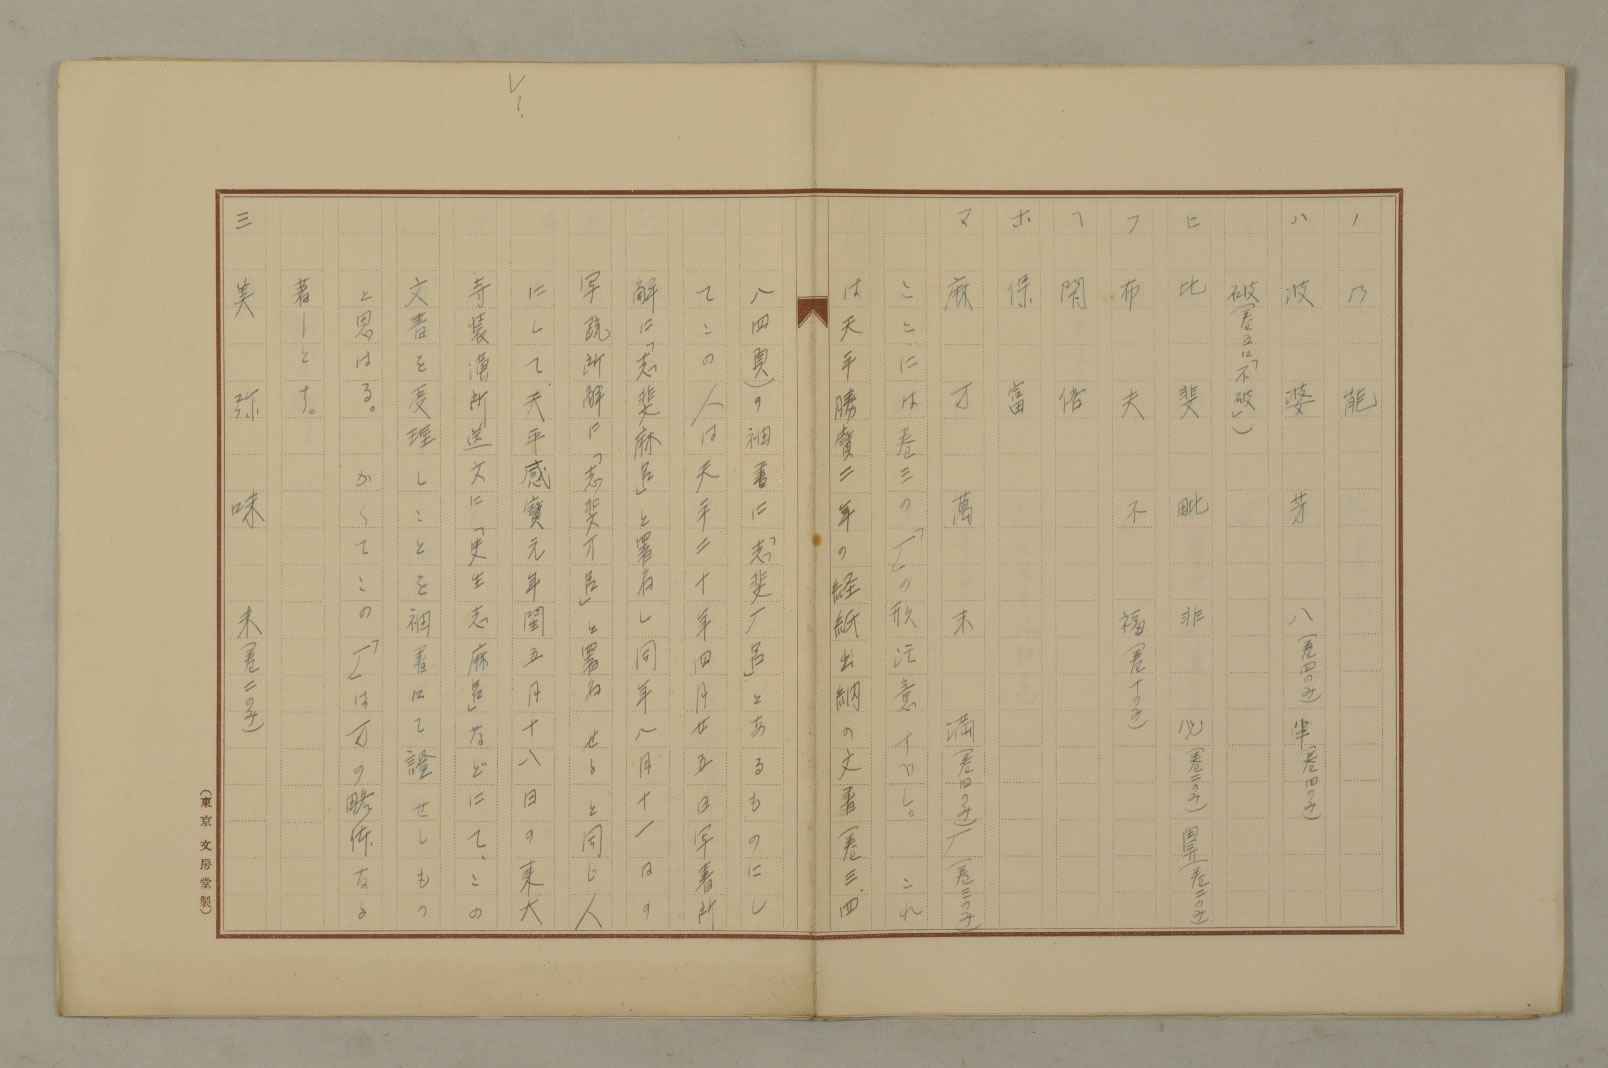 ノ 乃 能
ハ 波 婆 芳 八(巻四のみ) 半(巻四のみ)
破(巻五に「不破」)
ヒ 比 斐 毗 非 必(巻二のみ) 鼻(巻二のみ)
フ 布 夫 不 福(巻十のみ)
ヘ 閇 倍
ホ 保 富
マ 麻 万 萬 末 満(巻四のみ) 厂(巻三のみ)
ここには巻三の「厂」の形注意すべし。これ
は天平勝寶二年の経紙出納の文書(巻三、四
八四頁)の袖書に「志斐厂呂」とあるものにし
てこの人は天平二十年四月廿五日写書所
解に「志斐麻呂」と署名し同年八月十一日の
写疏所解に「志斐万呂」と署名せると同じ人
にして、天平感寶元年閏五月十八日の東大
寺装潢所送文に「史生志麻呂」などにて、この
文書を受理しことを袖書にて證せしもの
と思はる。かくてこの「厂」は万の略体なる
著しとす。
ミ 美 弥 味 未(巻二のみ)
(東京 文房堂製)